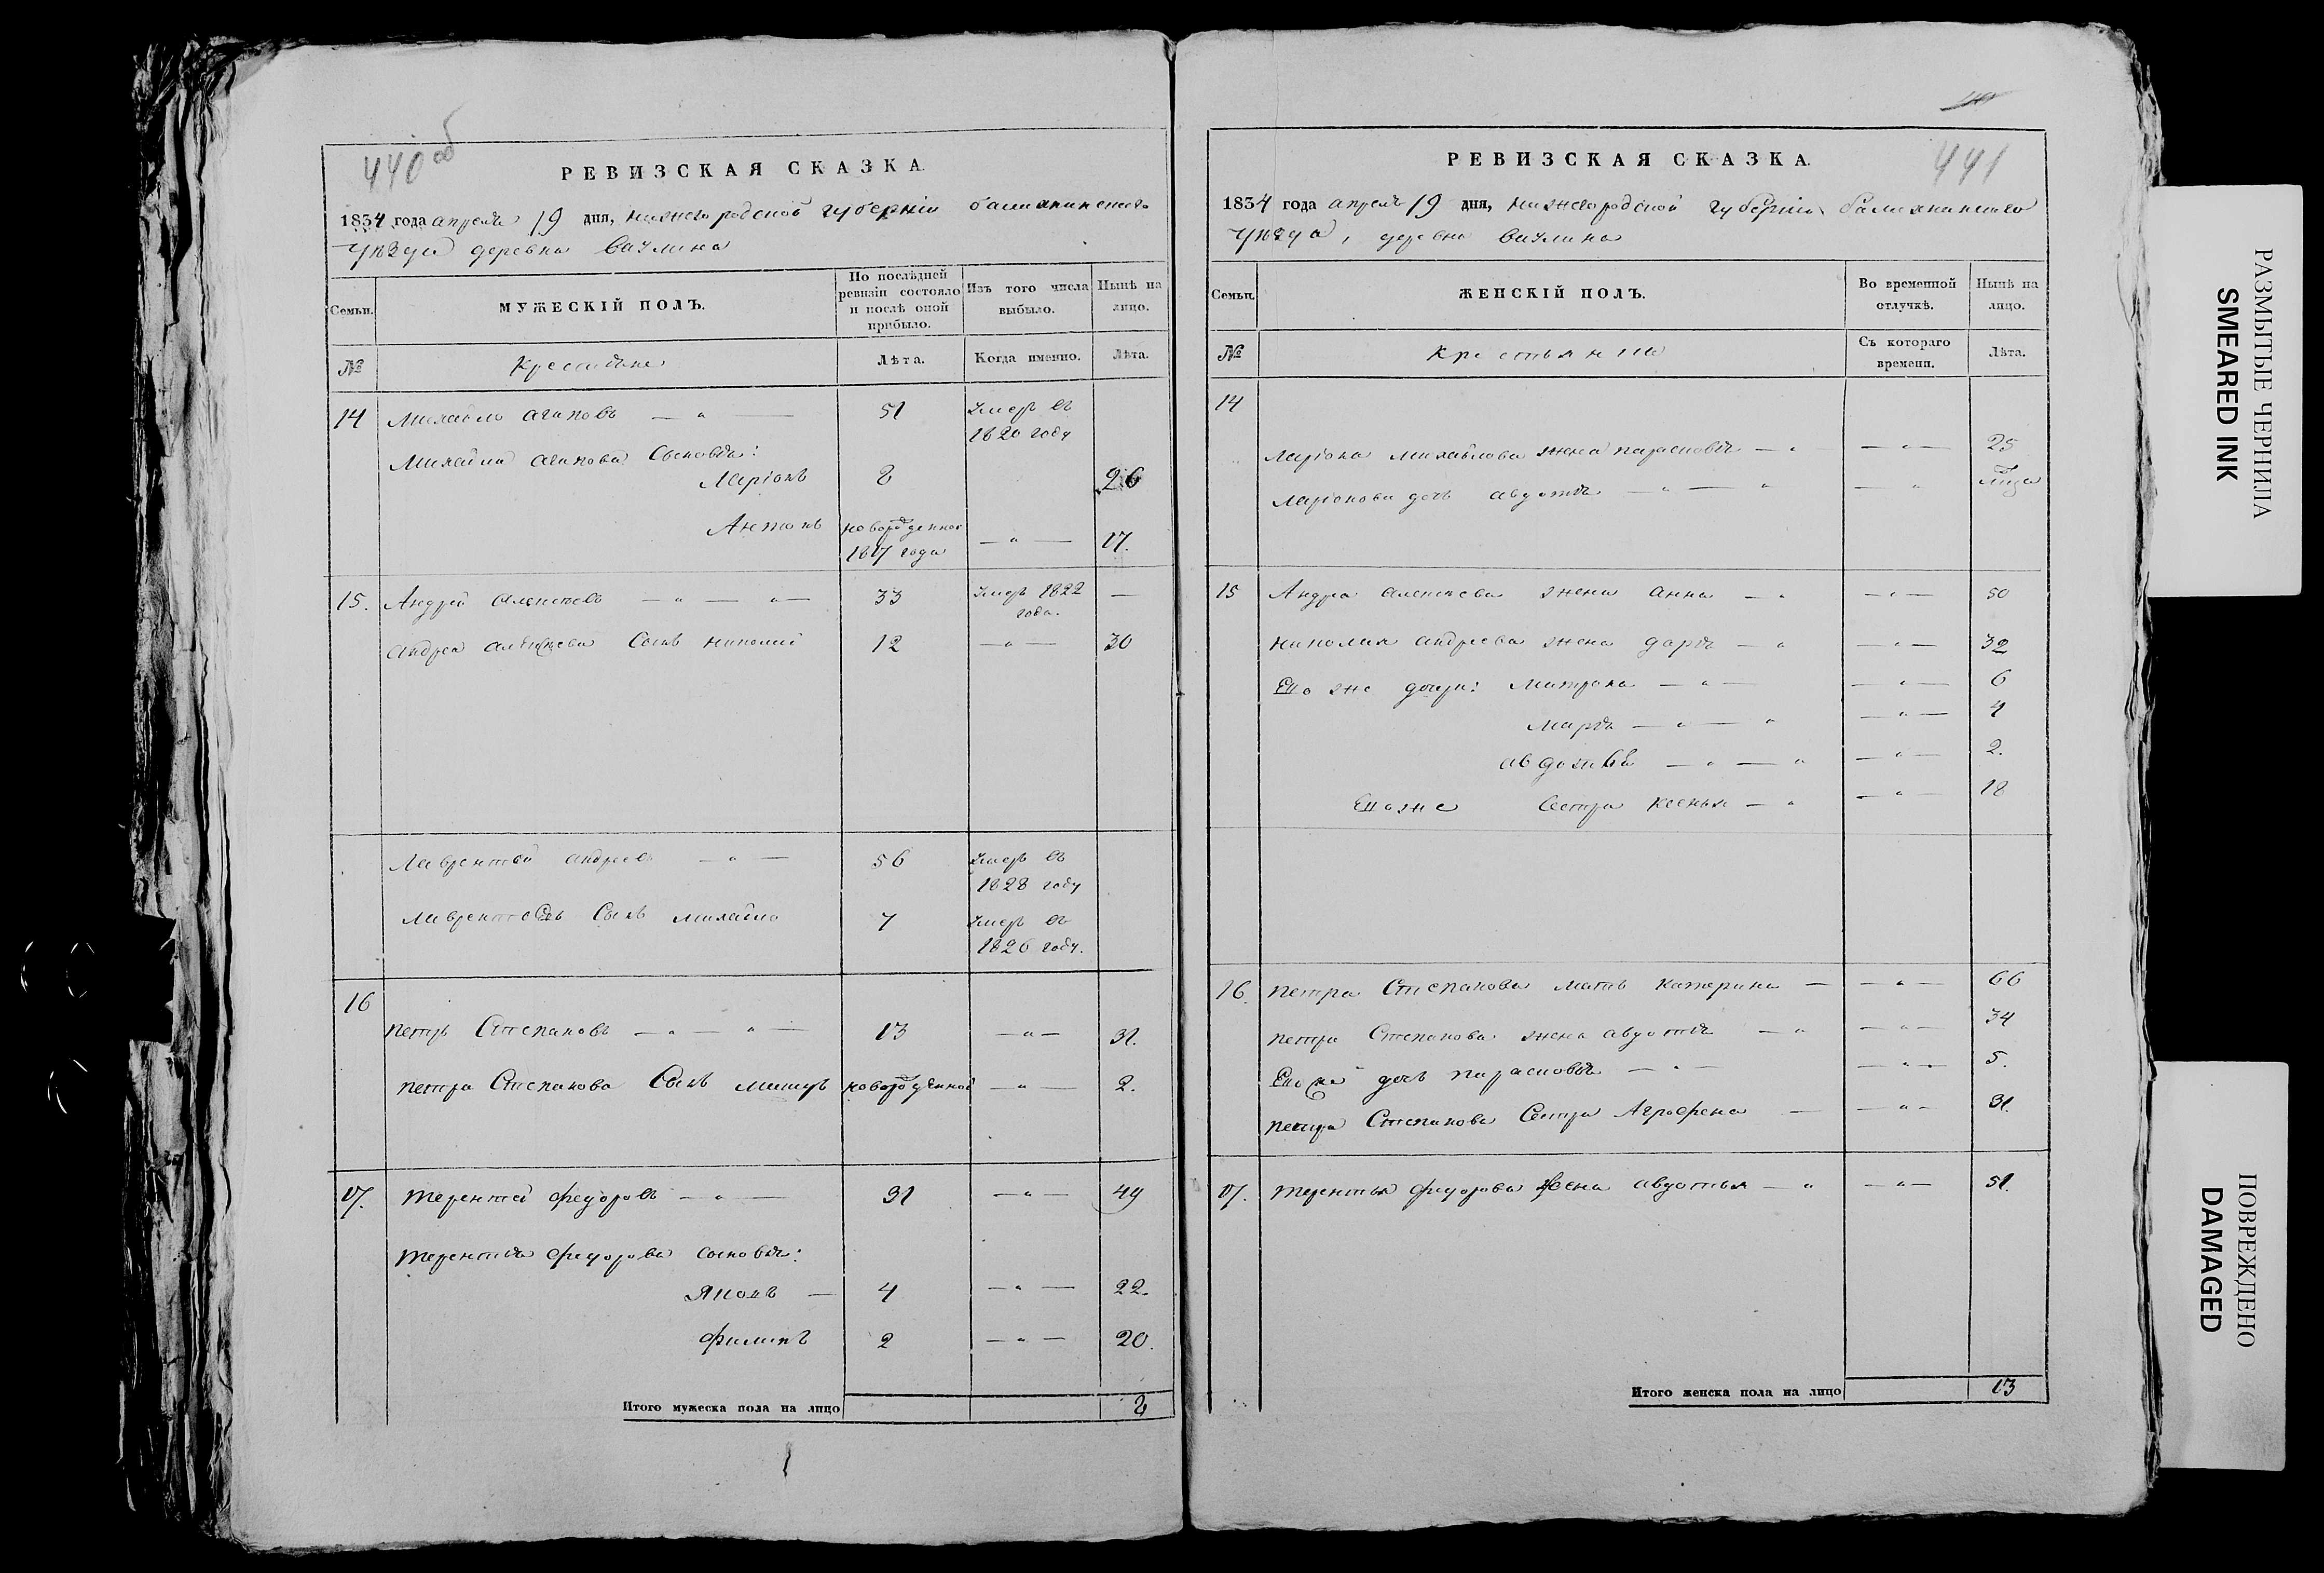 440 об
РЕВИЗСКАЯ СКАЗКА.
1834 года апреля 19 дня, нижегородской губернiи балахнинскаго
уѣзда деревни
Семьи.
МУЖЕСКIЙ ПОЛЪ.
По послѣдней ревизiи состояло и послѣ оной прибыло.
Изъ того числа выбыло.
Нынѣ на лицо.
№
Крестьяне
Лѣта.
Когда именно.
Лѣта.
14 Михайло агаповъ — " — 51 Умеръ въ
1820 году
Михайла агапова Сыновья:
Ларiонъ 8 26
Антонъ новорожденной — " — 17.
1817 года
15. Андрей алексеевъ — " — " — 33 Умеръ 1822 —
года.
андрея алексеева Сынъ николай 12 — " — 30
Лаврентей андреевъ — " — 56 Умеръ въ
1828 году
Лаврентьевъ Сынъ михайло 7 Умеръ въ
1826 году.
16
петръ Степановъ — " — " — 13 — " — 31.
петра Степанова Сынъ новорожденной — " — 2.
17. терентей федоровъ — " — 31 — " — 49
терентья федорова сыновья:
Яковъ — 4 — " — 22.
филипъ 2 — " — 20.
Итого мужеска пола на лицо 8
441
РЕВИЗСКАЯ СКАЗКА.
1834 года апреля 19 дня, нижегородской губернiи балахнинскаго
уѣзда, деревни
Семьи.
ЖЕНСКIЙ ПОЛЪ.
Во временной отлучкѣ.
Нынѣ на лицо.
№
Съ котораго времени.
Лѣта.
14
Ларiона михайлова жена парасковья — " — " — 25
Ларiонова дочь авдотья — " — " — "
15 Андрея алексеева жена анна — " — " — 50
николая андреева жена дарья — " — " — 32
Его же дочери: матрена — " — — " — 6
марья — " — " — " — 4
авдотья — " — " — " — 2.
Его же Сестра ксенья — " — " — 18
16. петра Степанова мать катерина — — " — 66
петра Степанова жена авдотья — " — " — 34
дочь парасковья — " — — " — 5.
петра Степанова Сестра Аграфена — — " — 31.
17. терентья федорова жена авдотья — " — " — 51.
Итого женска пола на лицо 13
РАЗМЫТЫЕ ЧЕРНИЛА
SMEARED INK
ПОВРЕЖДЕНО
DAMAGED